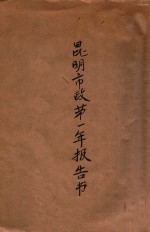 昆明市政第一年报告书